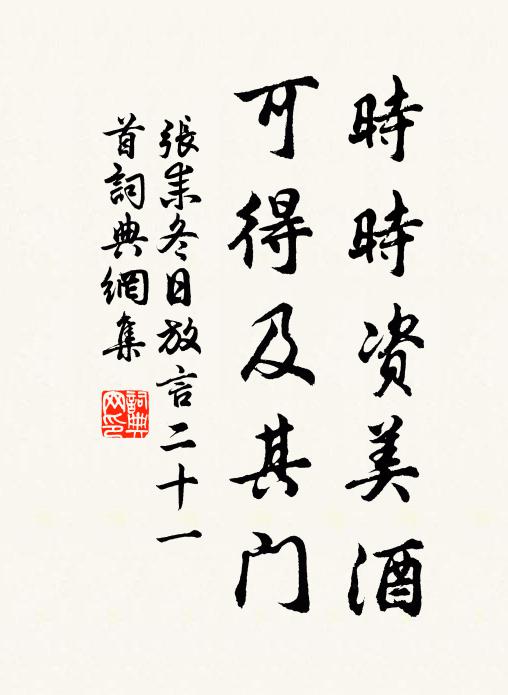 時時資美酒
可得及其門
張耒冬日放言二十一
首詞典網集
詞典网印